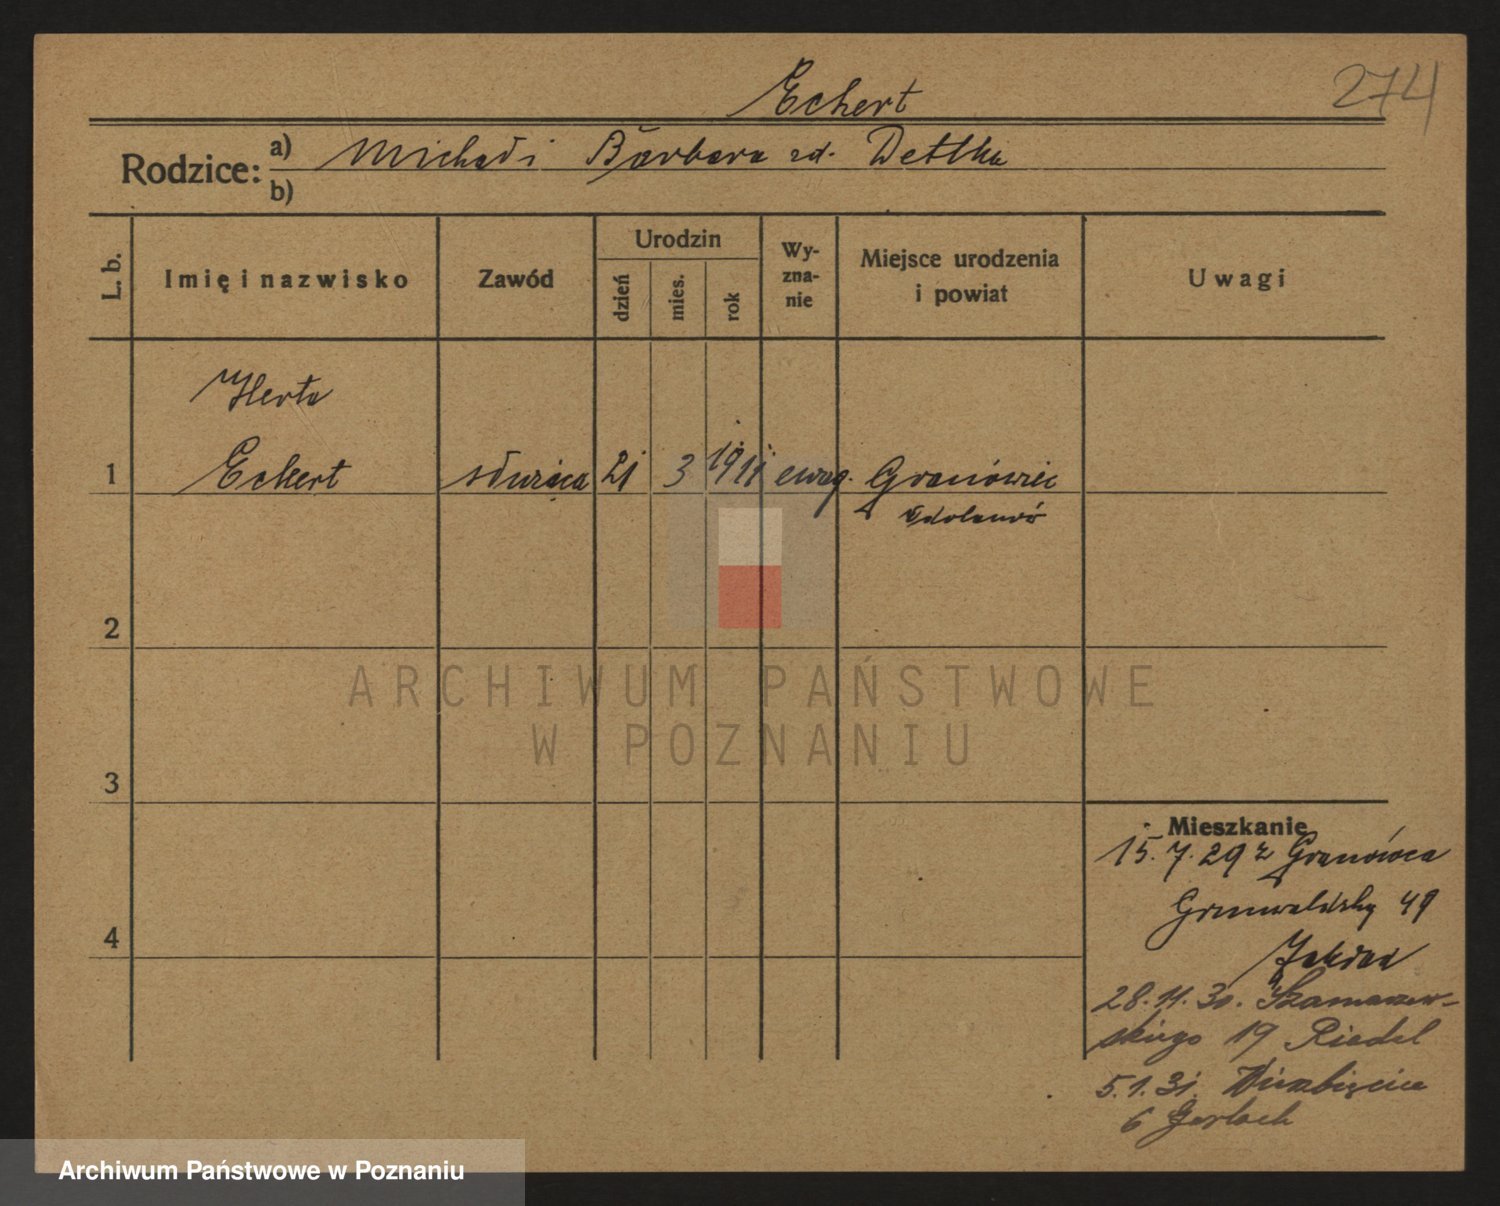 Eckert
274
Rodzice: a) Michał i Barbara zd. Dettka
b)
L. b. Imię i nazwisko Zawód Urodzin dzień mies. rok Wy-zna-nie Miejsce urodzenia i powiat Uwagi
Herta
1 Eckert służąca 21 3 1911 ewag. Granówiec
Odolanów
2
3
4
Mieszkanie
15.7.29 z Granówca
Grunwaldzka 49
28.11.30. Szamarzew-
skiego 19 Riedel
5.1.31. Wierzbięcice
6 Gerlach
ARCHIWUM PAŃSTWOWE
W POZNANIU
Archiwum Państwowe w Poznaniu